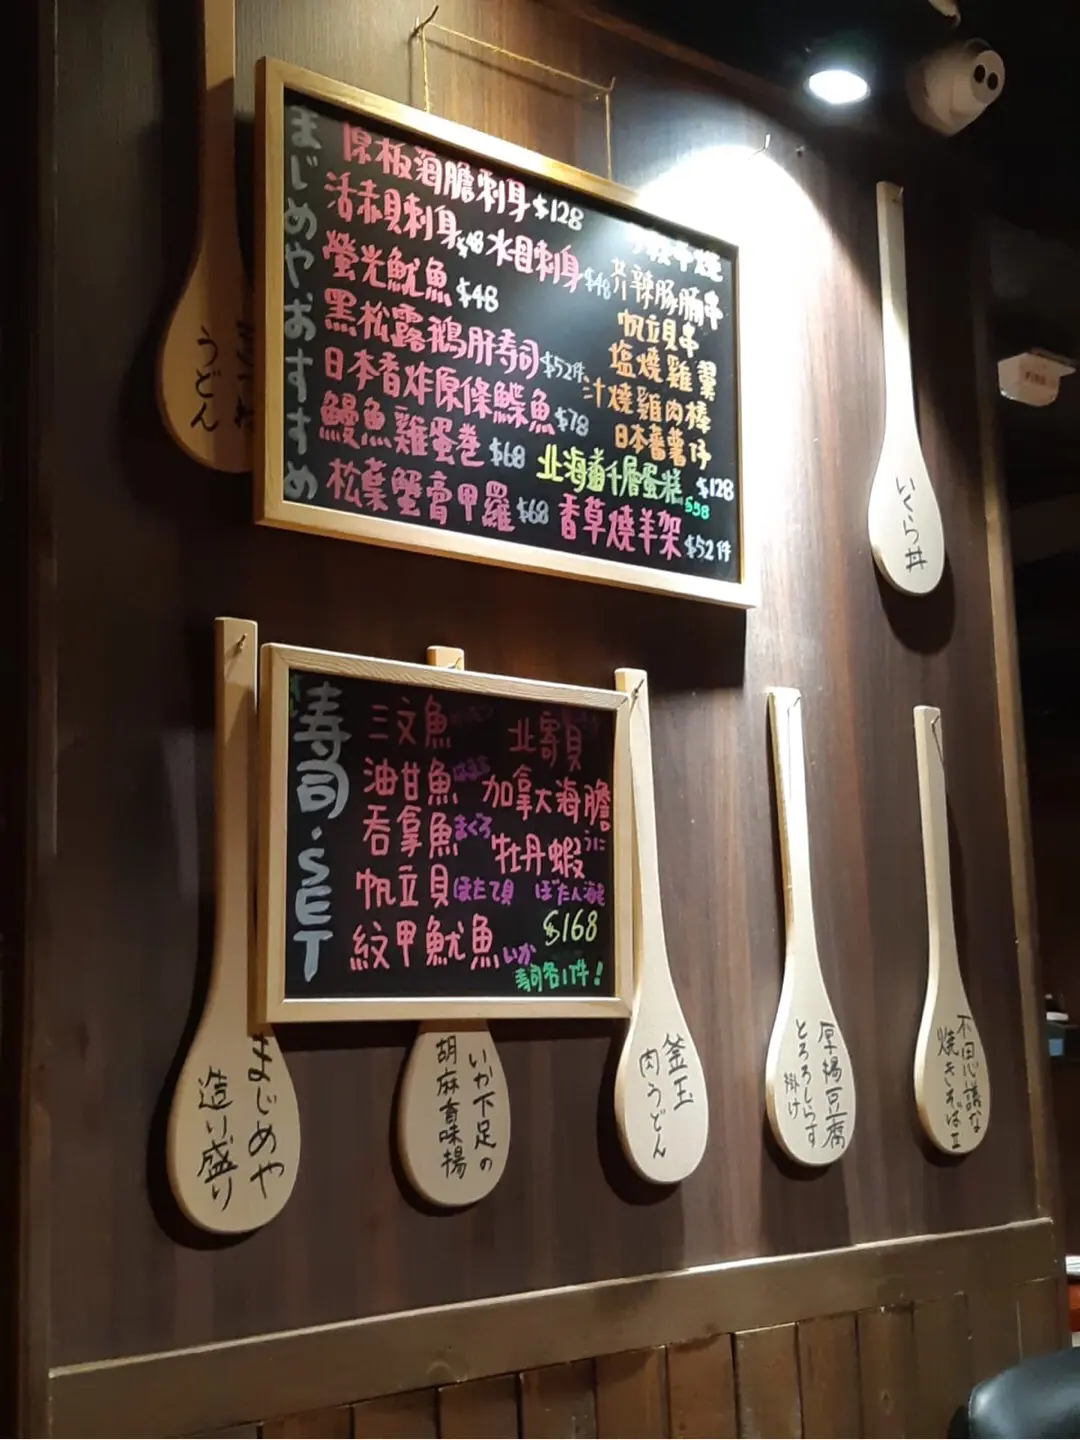 まじめやおすすめ
原板海膽刺身$128
活赤貝刺身$48 水目刺身$48
螢光魷魚$48
黑松露鵝肝壽司$52件
日本香炸原條鰈魚$78
鰻魚雞蛋卷$68
松葉蟹膏甲羅$68
串燒
芥辣豚腩串
帆立貝串
塩燒雞翼
汁燒雞肉棒
日本蕃薯仔
$128
北海道千層蛋糕$58
香草燒羊架$52件
寿司·SET
三文魚
油甘魚はまち
吞拿魚まぐろ
帆立貝ほたて貝
紋甲魷魚いか
北寄貝
加拿大海膽うに
牡丹蝦
ぼたん海老
$168
寿司各1件!
うどん
いくら丼
まじめや
造り盛り
いか下足の
胡麻香味揚
釜玉
肉うどん
厚揚豆腐
とろろしらす
掛け
不思議な
焼きそば